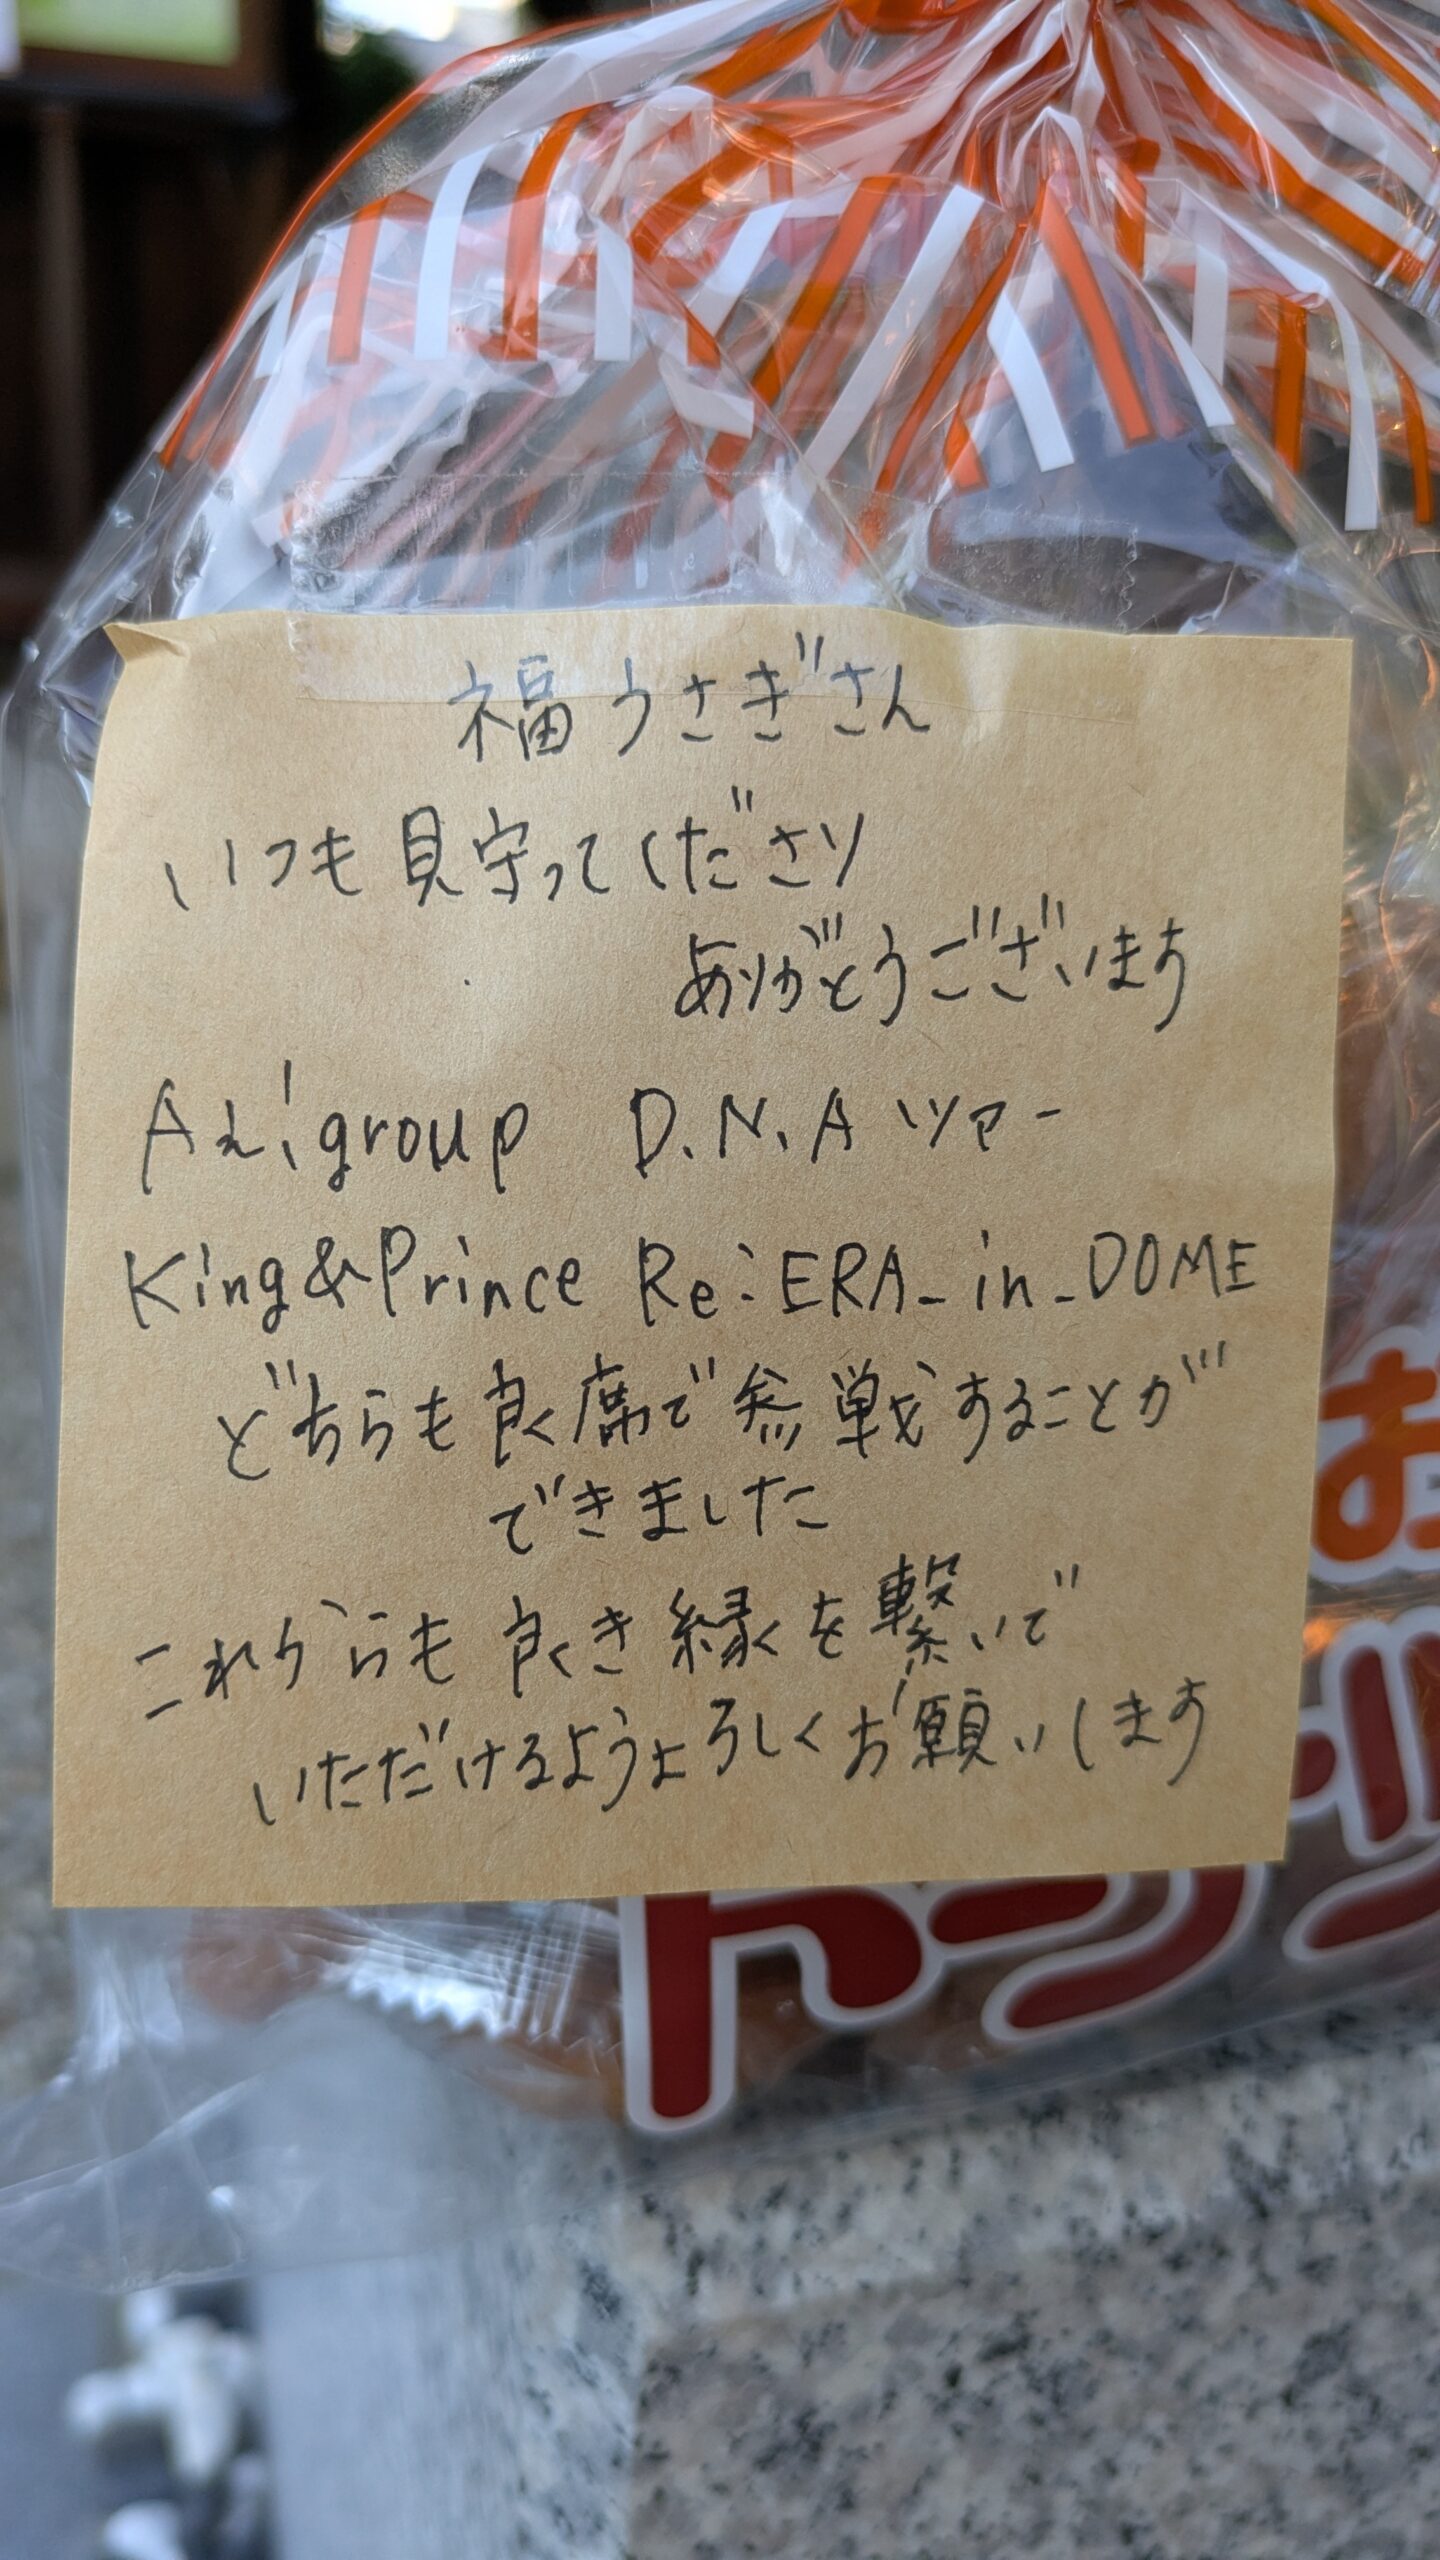 福うさぎさん
いつも見守ってくださり
ありがとうございます
Aぇ!group D.N.Aツアー
King&Prince Re:ERA_in_DOME
どちらも良く席で参戦することが
できました
これからも良くき縁を繋いで
いただけるようよろしくお願いします
お
ドーナツ